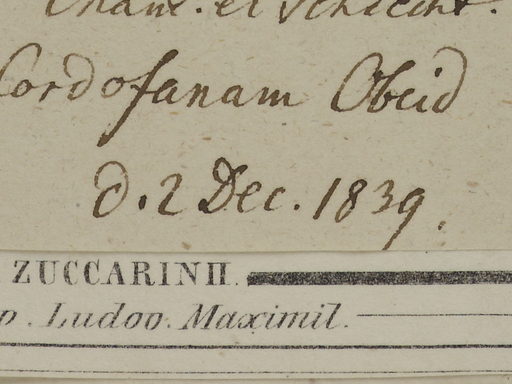 Cham. et Schlecht.
Cordofanam Obeid
d. 2 Dec. 1839.
ZUCCARINII.
p. Ludov. Maximil.